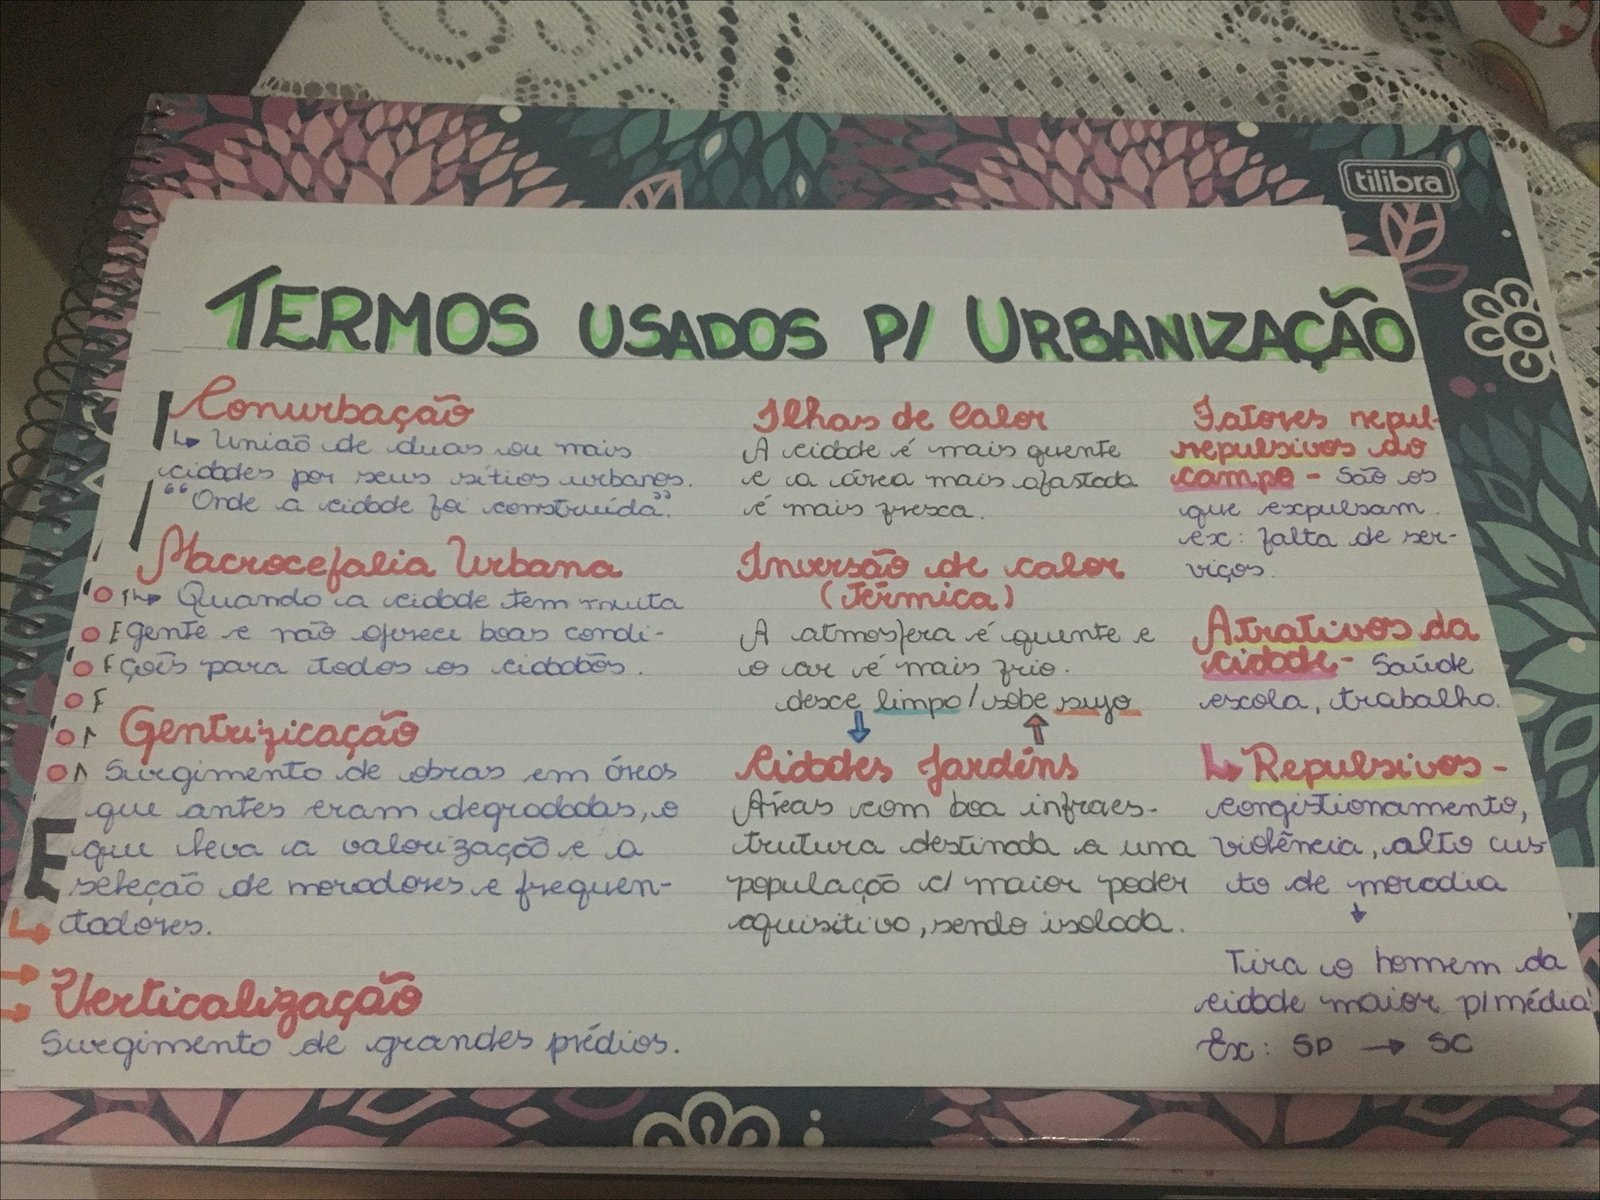 tilibra
TERMOS USADOS P/ URBANIZAÇÃO
Conurbação
↳ União de duas ou mais
cidades por seus sítios urbanos.
"Onde a cidade foi construída".
Macrocefalia Urbana
↳ Quando a cidade tem muita
gente e não oferece boas condi-
ções para todos os cidadãos.
Gentrificação
Surgimento de obras em áreas
que antes eram degradadas, o
que leva a valorização e a
seleção de moradores e frequen-
tadores.
Verticalização
Surgimento de grandes prédios.
Ilhas de Calor
A cidade é mais quente
e a área mais afastada
é mais fresca.
Inversão de calor
(Térmica)
A atmosfera é quente e
o ar é mais frio.
desce limpo / sobe sujo
Cidades Jardéns
Áreas com boa infraes-
trutura destinada a uma
população c/ maior poder
aquisitivo, sendo isolada.
Fatores repul-
repulsivos do
campo - São os
que expulsam.
ex: falta de ser-
viços.
Atrativos da
cidade - Saúde
escola, trabalho.
↳ Repulsivos -
congistionamento,
violência, alto cus-
to de moradia
↓
Tira o homem da
cidade maior p/ média
Ex: SP → SC